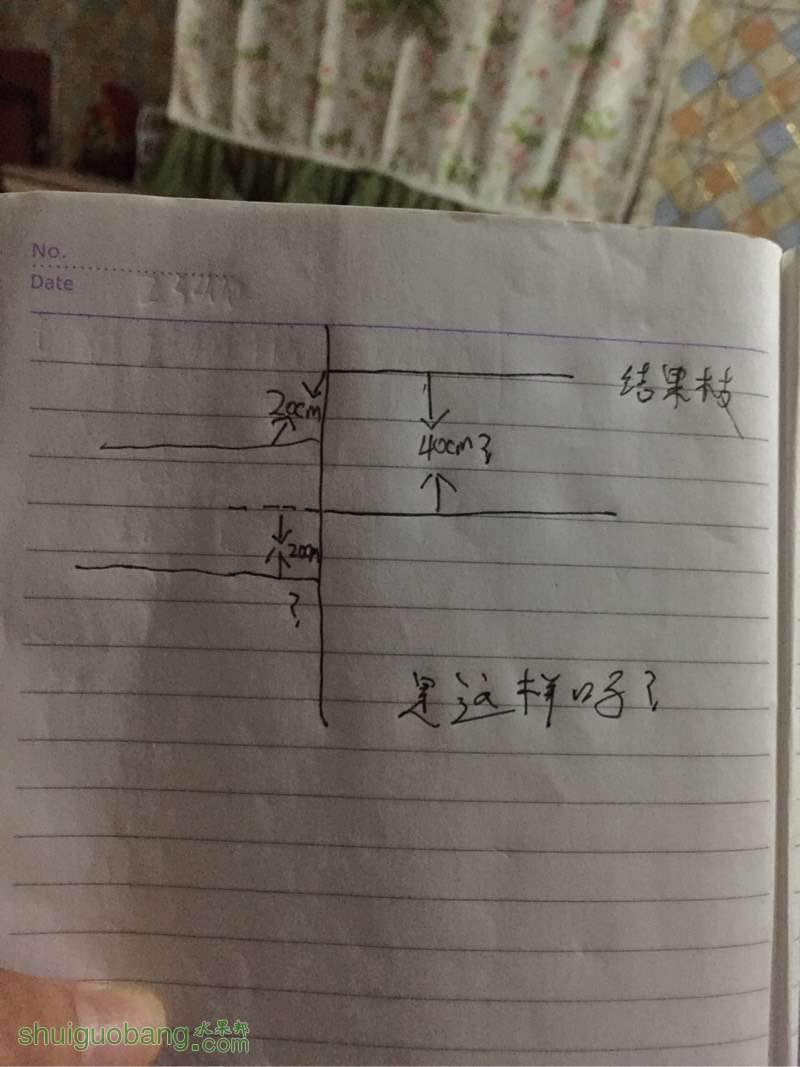 No.
Date
结果枝
20cm
40cm?
20cm
?
是这样吗?
shuiguobang.水果邦
.com